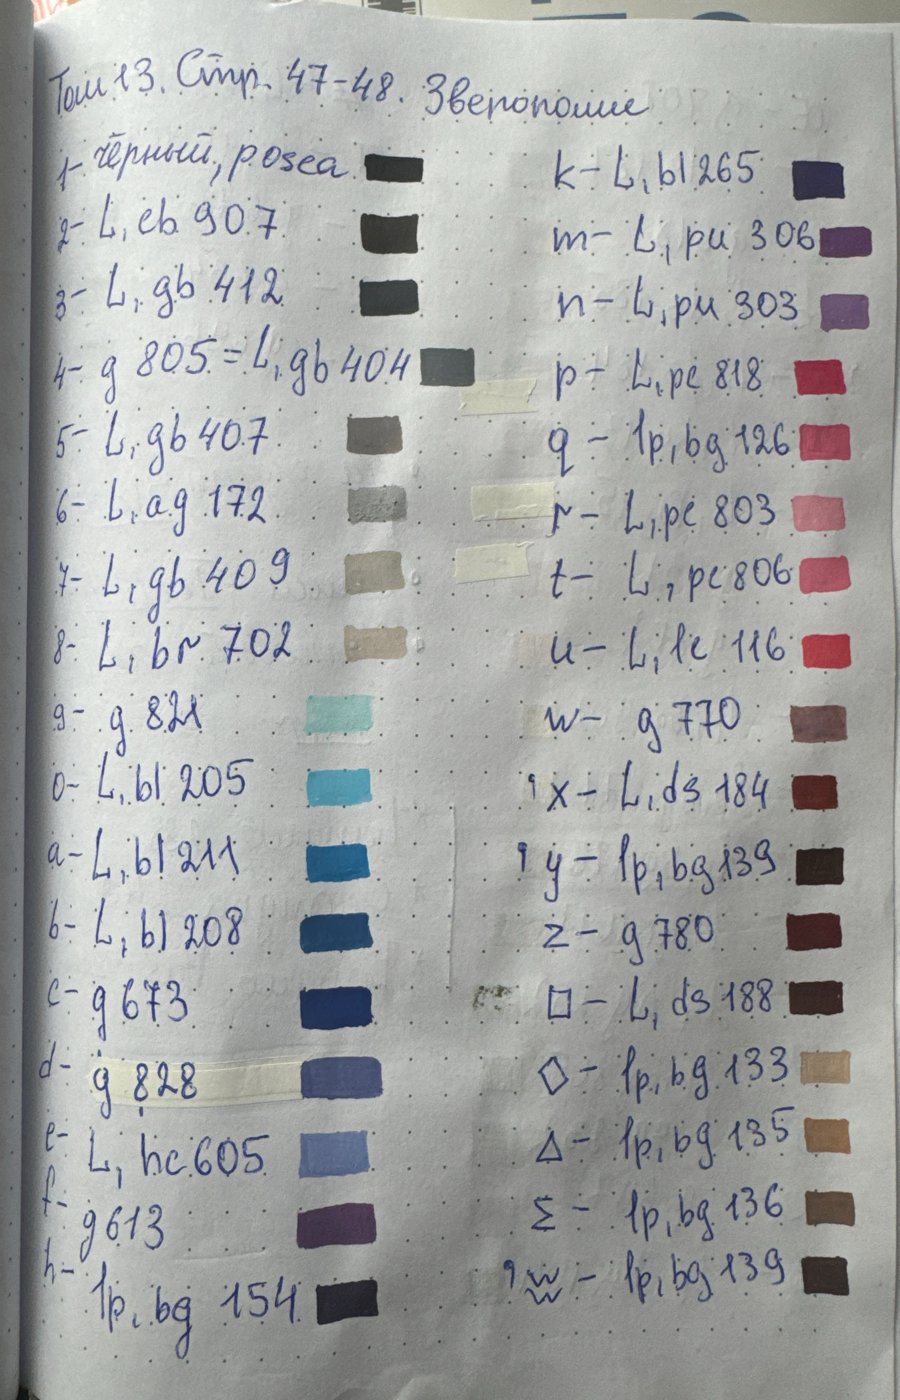 Том 13. Стр. 47-48. Зверополис
1- чёрный, posca
2- L, eb 907
3- L, gb 412
4- g 805 = L, gb 404
5- L, gb 407
6- L, ag 172
7- L, gb 409
8- L, br 702
9- g 821
0- L, bl 205
a- L, bl 211
b- L, bl 208
c- g 673
d- g 828
e- L, hc 605
f- g 613
h- lp, bg 154
k- L, bl 265
m- L, pu 306
n- L, pu 303
p- L, pc 818
q - lp, bg 126
r- L, pc 803
t- L, pc 806
u- L, lc 116
w- g 770
x- L, ds 184
y- lp, bg 139
z- g 780
□- L, ds 188
◇- lp, bg 133
Δ- lp, bg 135
Σ - lp, bg 136
w - lp, bg 139